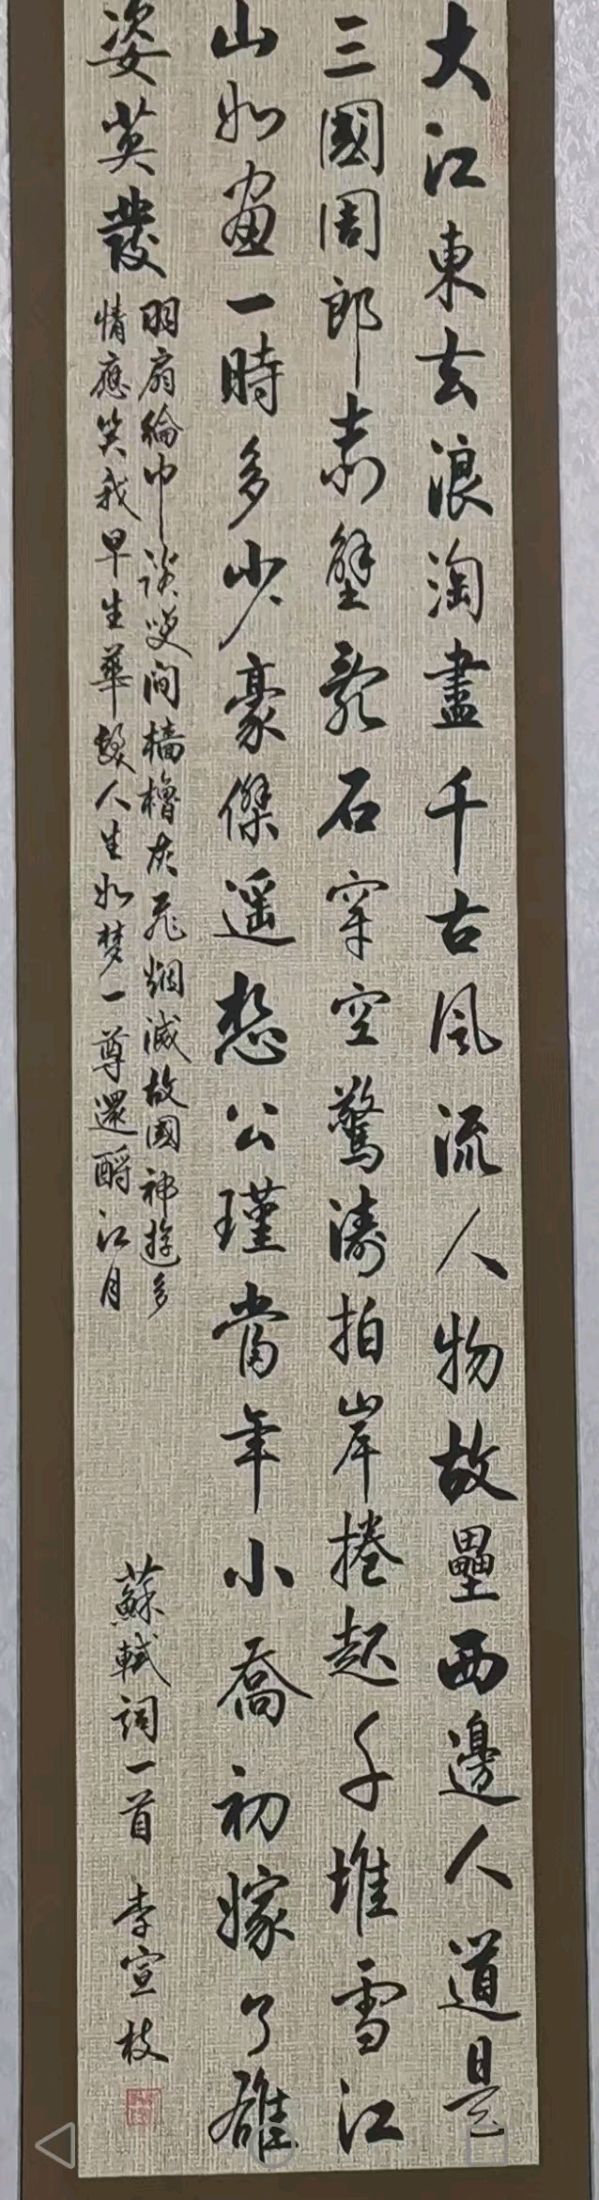 大江東去浪淘盡千古風流人物故壘西邊人道是
三國周郎赤壁亂石穿空驚濤拍岸捲起千堆雪江
山如畫一時多少豪傑遥想公瑾當年小喬初嫁了雄
姿英發
羽扇綸巾談咲间檣櫓灰飛烟滅故國神遊多
情應笑我早生華髮人生如梦一尊還酹江月
蘇軾詞一首 李宣枝